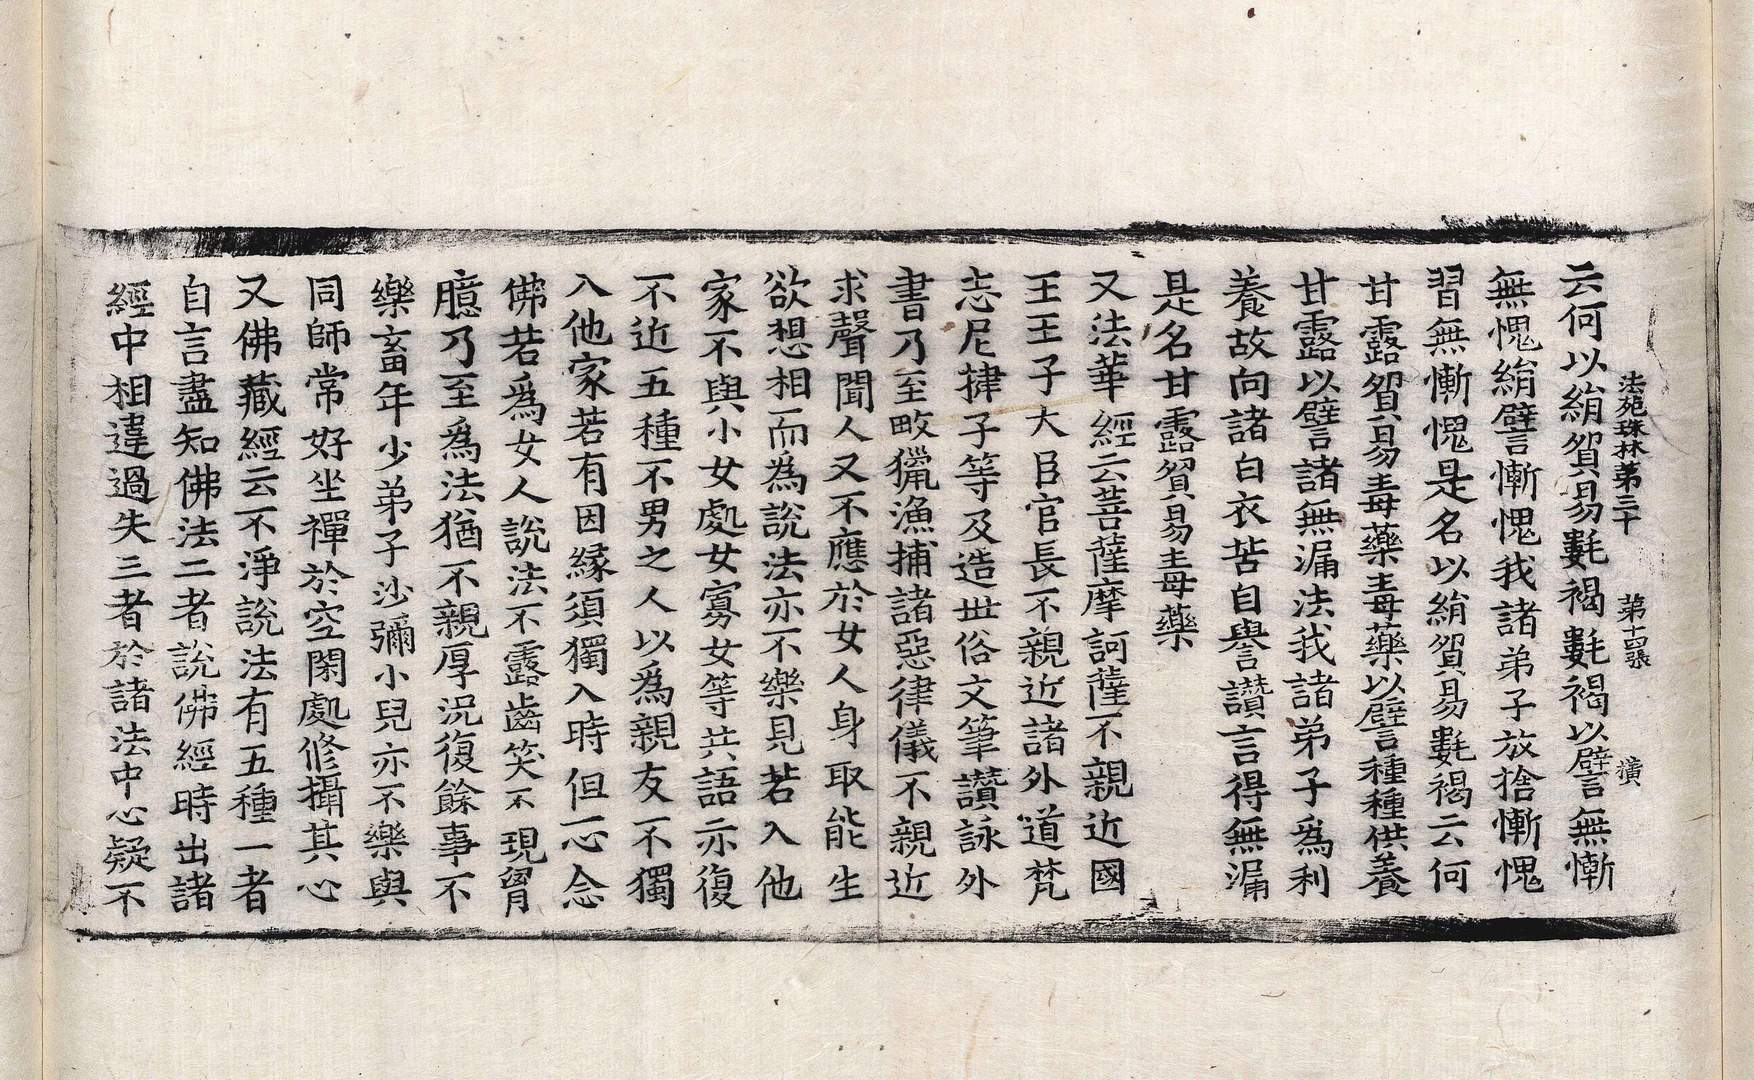 云何以絹貿易㲲褐㲲褐以譬無慚
法苑珠林第三十　第十四張　橫
無愧絹譬慚愧我諸弟子放捨慚愧
習無慚愧是名以絹貿易㲲褐云何
甘露貿易毒藥毒藥以譬言種種供養
甘露以譬諸無漏法我諸弟子爲利
養故向諸白衣苦自譽讚言得無漏
是名甘露貿易毒藥
又法華經云菩薩摩訶薩不親近國
王王子大臣官長不親近諸外道梵
志尼揵子等及造世俗文筆讚詠外
書乃至畋獵漁捕諸惡律儀不親近
求聲聞人又不應於女人身取能生
欲想相而爲說法亦不樂見若入他
家不與小女處女寡女等共語亦復
不近五種不男之人以爲親友不獨
入他家若有因緣須獨入時但一心念
佛若爲女人說法不露齒笑不現胷
臆乃至爲法猶不親厚況復餘事不
樂畜年少弟子沙彌小兒亦不樂與
同師常好坐禪於空閑處修攝其心
又佛藏經云不淨說法有五種一者
自言盡知佛法二者說佛經時出諸
經中相違過失三者於諸法中心疑不